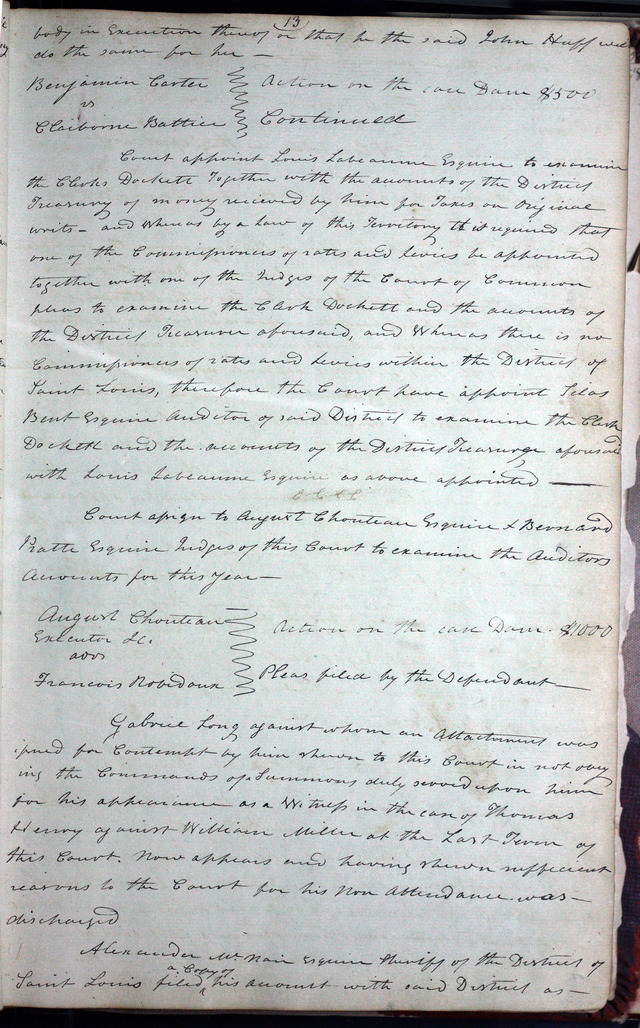 13
body in Execution thereof or that he the said John Huff will
do the same for her —
Benjamin Carter
vs
Claiborne Battice
Action on the case Dam $500
Continued
Court appoint Louis Labeaume Esquire to examine
the Clerks Dockett Together with the accounts of the District
Treasury of money recieved by him for Taxes on Original
writs – and Whereas by a Law of this Territory it is required that
one of the Commissioners of rates and levies be appointed
together with one of the Judges of the Court of Common
pleas to examine the Clerk Dockett and the accounts of
the District Treasurer aforesaid, and Whereas there is no
Commissioners of rates and Levies within the District of
Saint Louis, therefore the Court have appoint Silas
Bent Esquire Auditor of said District to examine the Clerk
Dockett and the accounts of the District Treasurer aforesaid
with Louis Labeaume Esquire as above appointed —
Court assign to August Chouteau Esquire & Bernard
Pratte Esquire Judges of this Court to examine the Auditors
Accounts for this Year —
August Chouteau
Executor &c.
advs
Francois Robidoux
Action on the case Dam. $1000
Pleas filed by the Defendant —
Gabriel Long against whom an Attachment was
issued for Contempt by him shewn to this Court in not obey
ing the Commands of a Summons duly served upon him
for his appearance as a Witness in the case of Thomas
Henry against William Miller at the Last Term of
this Court. Now appears and having shewn sufficient
reasons to the Court for his Non Attendance was —
discharged
Alexander McNair Esquire Sheriff of the District of
Saint Louis filed a Copy of his account with said District as —